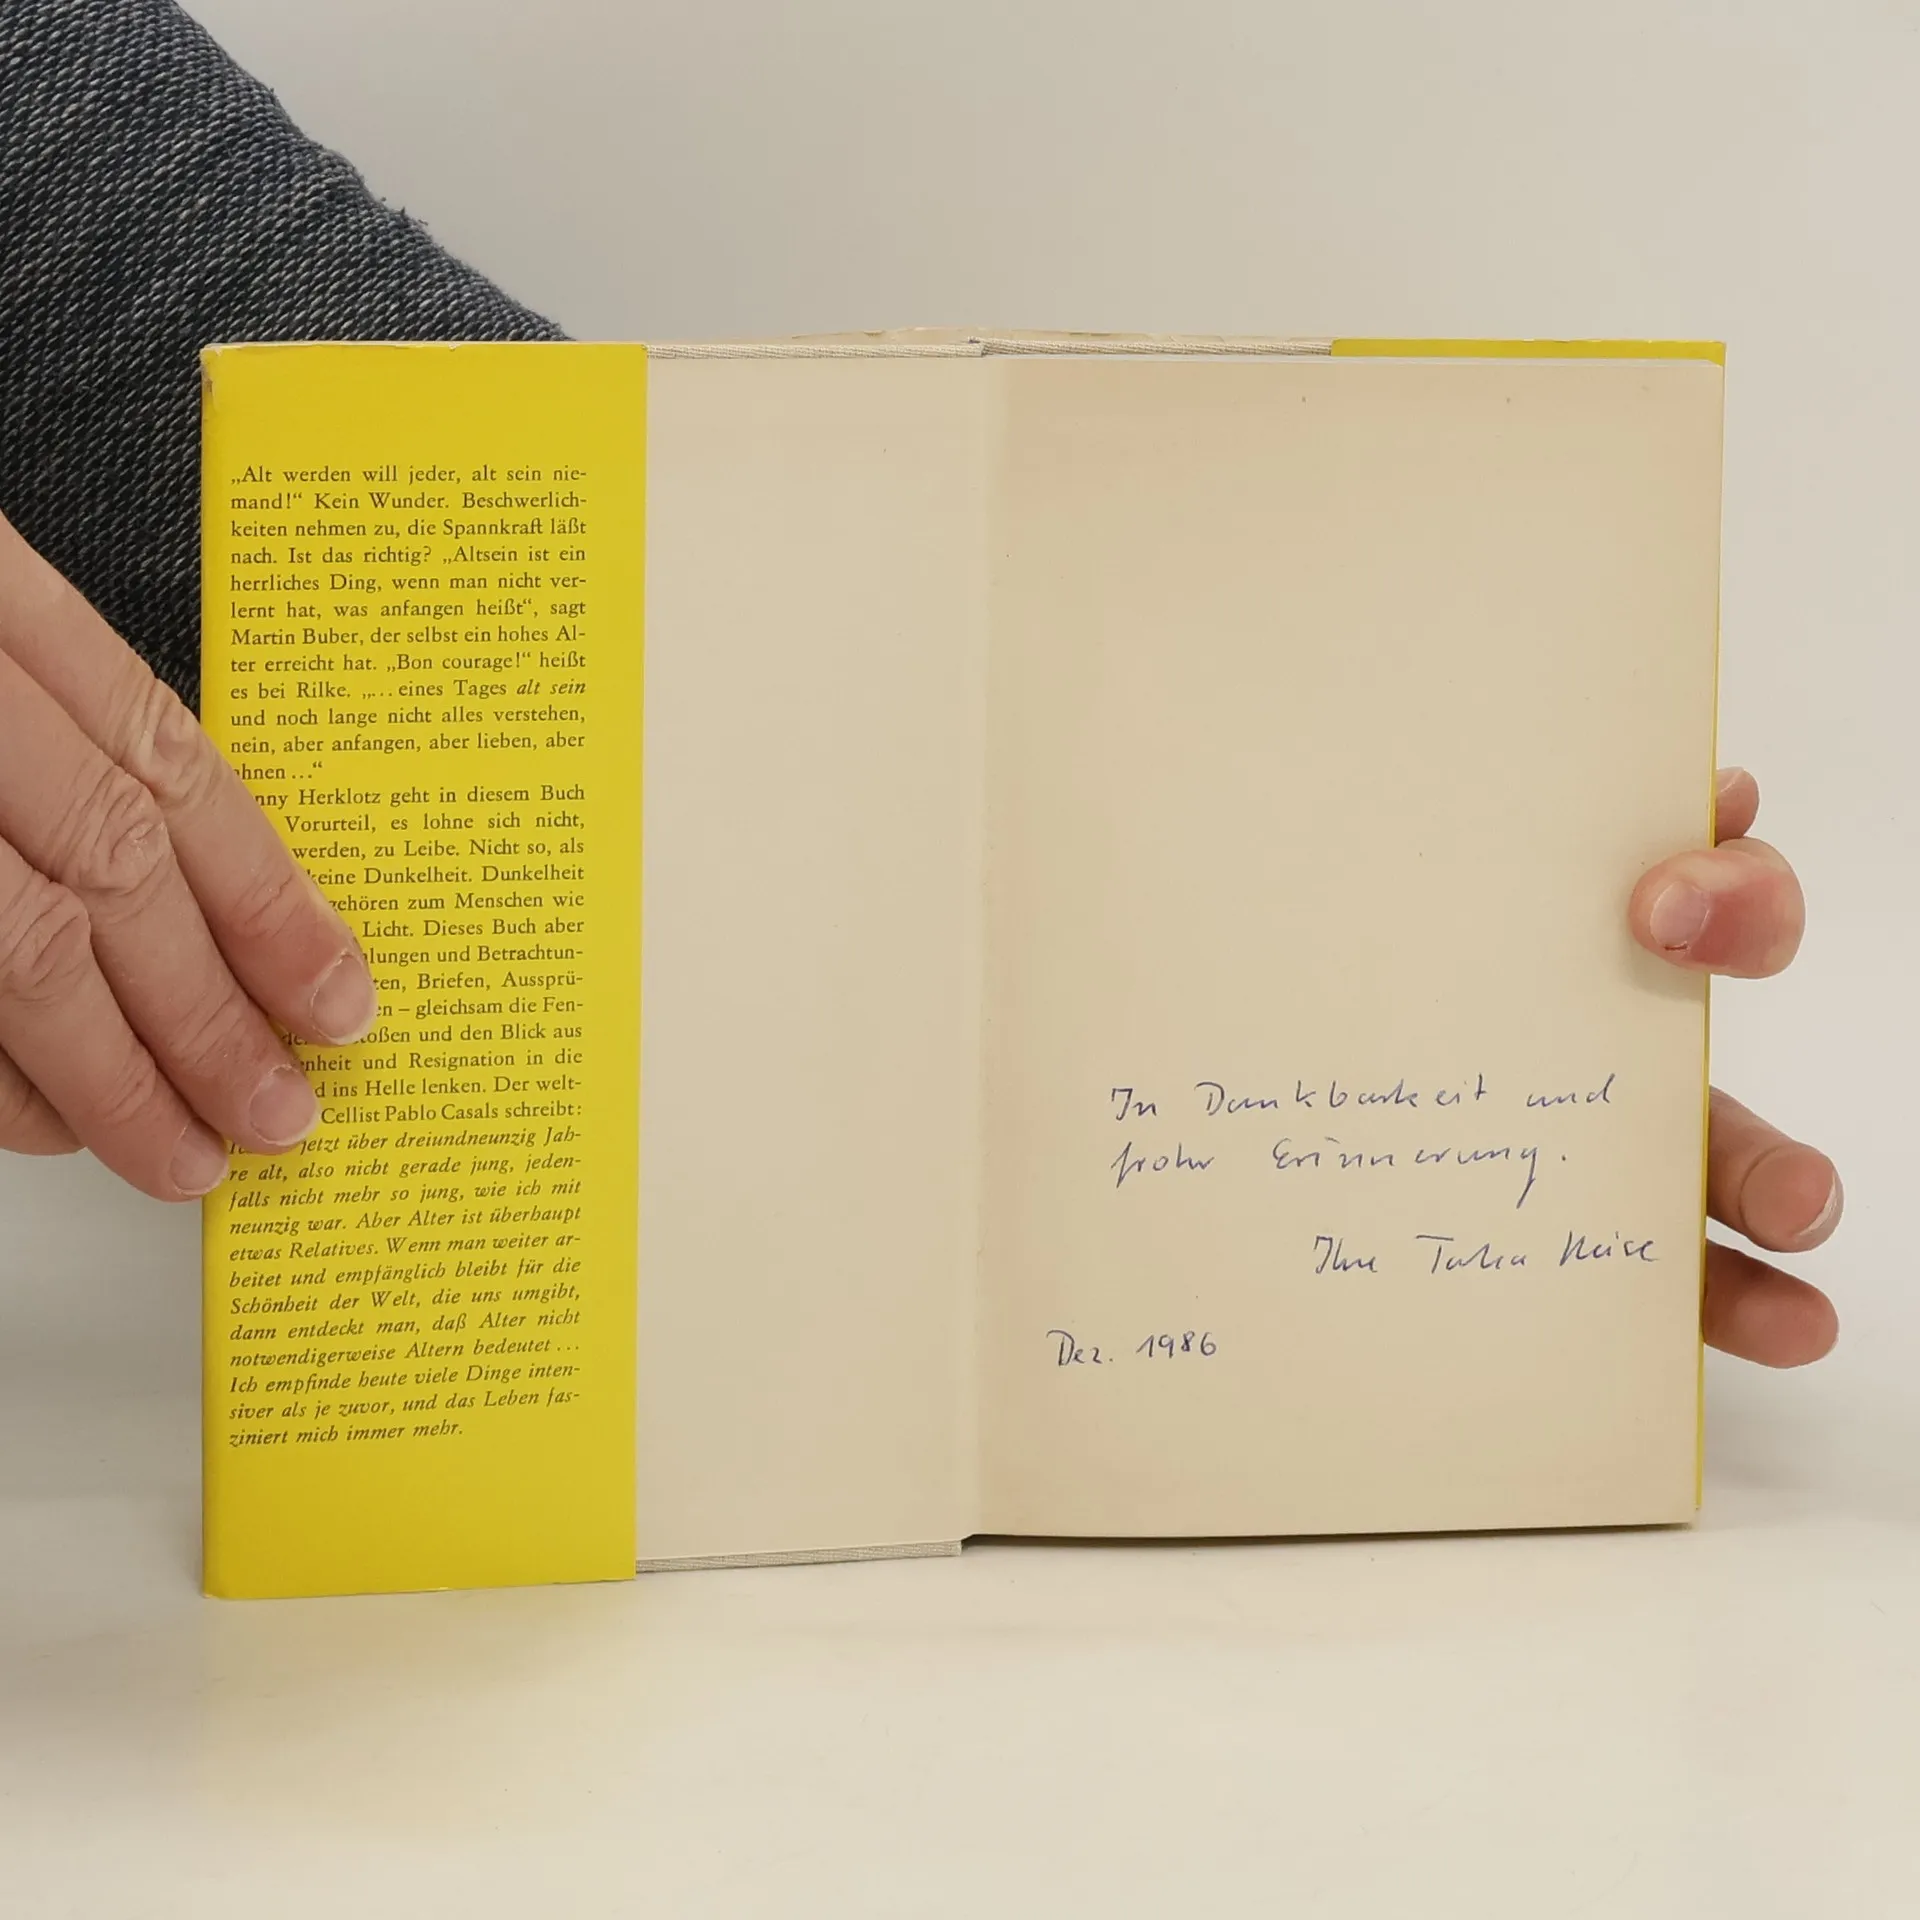 „Alt werden will jeder, alt sein nie-
mand!“ Kein Wunder. Beschwerlich-
keiten nehmen zu, die Spannkraft läßt
nach. Ist das richtig? „Altsein ist ein
herrliches Ding, wenn man nicht ver-
lernt hat, was anfangen heißt“, sagt
Martin Buber, der selbst ein hohes Al-
ter erreicht hat. „Bon courage!“ heißt
es bei Rilke. „... eines Tages alt sein
und noch lange nicht alles verstehen,
nein, aber anfangen, aber lieben, aber
ahnen ...“
Herklotz geht in diesem Buch
Vorurteil, es lohne sich nicht,
werden, zu Leibe. Nicht so, als
keine Dunkelheit. Dunkelheit
gehören zum Menschen wie
Licht. Dieses Buch aber
und Betrachtun-
Briefen, Aussprü-
– gleichsam die Fen-
und den Blick aus
und Resignation in die
ins Helle lenken. Der welt-
Cellist Pablo Casals schreibt:
jetzt über dreiundneunzig Jah-
re alt, also nicht gerade jung, jeden-
falls nicht mehr so jung, wie ich mit
neunzig war. Aber Alter ist überhaupt
etwas Relatives. Wenn man weiter ar-
beitet und empfänglich bleibt für die
Schönheit der Welt, die uns umgibt,
dann entdeckt man, daß Alter nicht
notwendigerweise Altern bedeutet ...
Ich empfinde heute viele Dinge inten-
siver als je zuvor, und das Leben fas-
ziniert mich immer mehr.
In Dankbarkeit und
froher Erinnerung.
Ihre
Dez. 1986